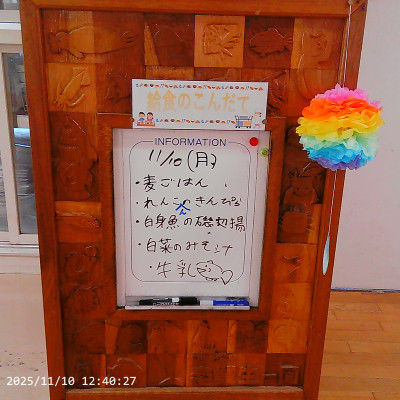 給食のこんだて
INFORMATION
11/10(月)
・麦ごはん
・れんこんのきんぴら
・白身魚の磯辺揚
・白菜のみそ汁
・牛乳
2025/11/10 12:40:27